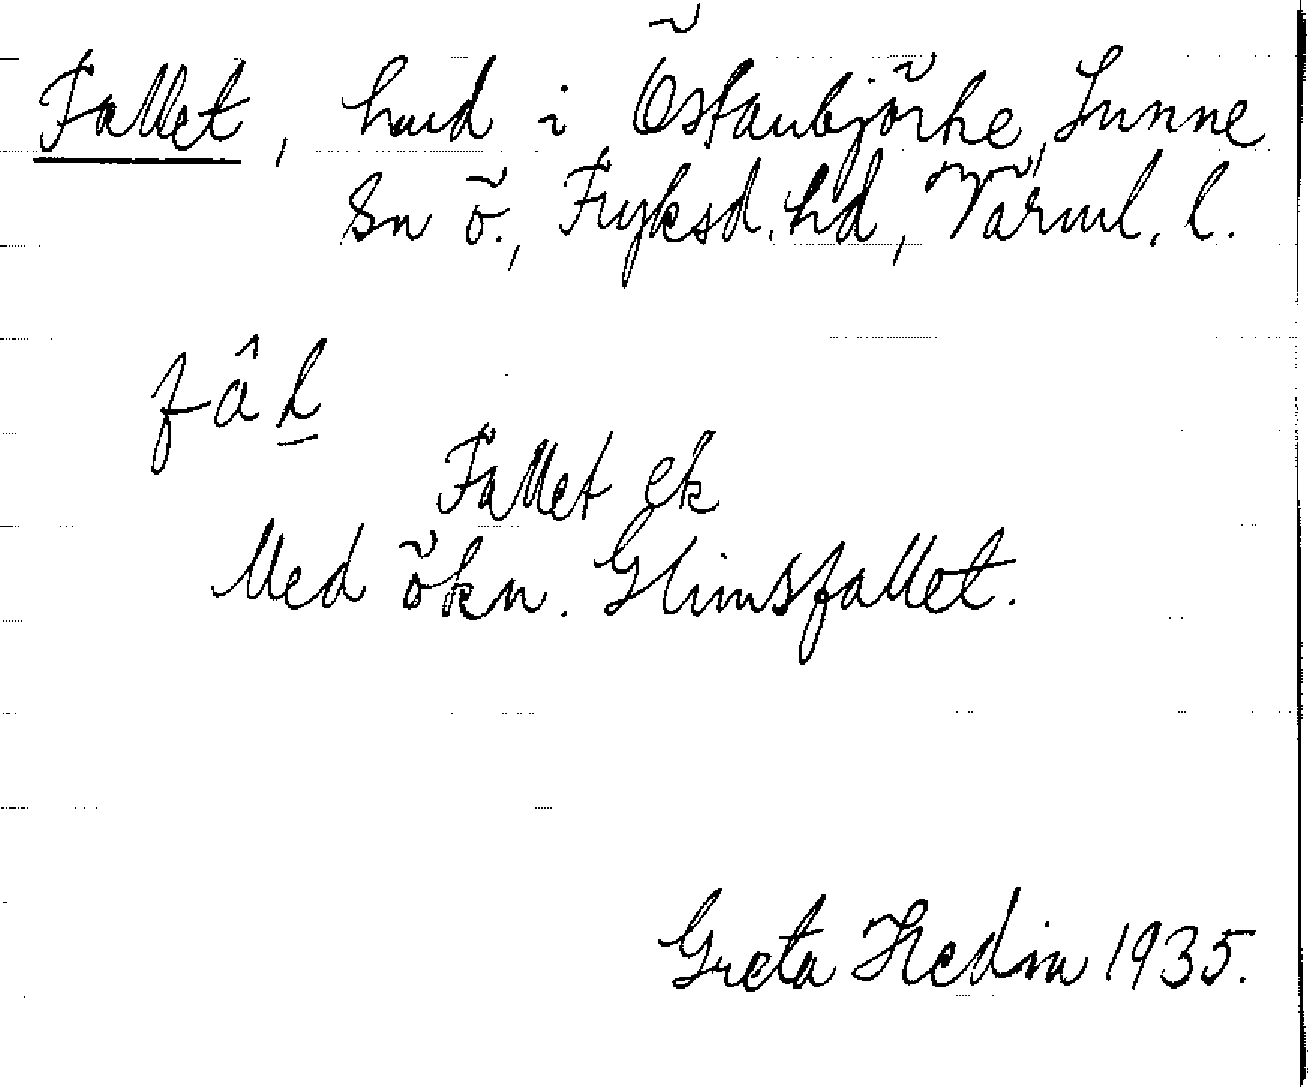 Fallet, hmd i Östanbjörke, Sunne
sn ö., Fryksd. hd, Värml. l.
fâl
Fallet ek
Med ökn. Glimsfallet.
Greta Hedin 1935.